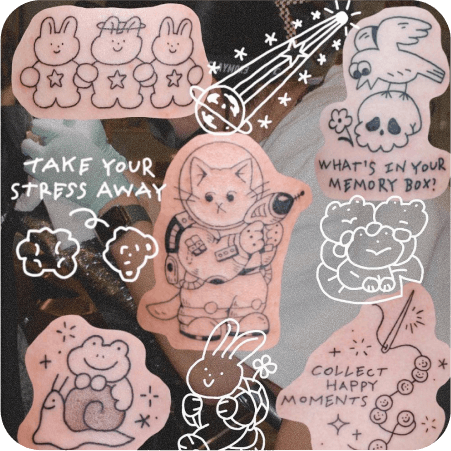 TAKE YOUR
STRESS AWAY
WHAT'S IN YOUR
MEMORY BOX?
COLLECT
HAPPY
MOMENTS